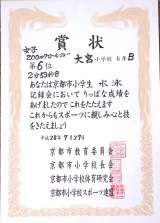 賞状
女子
大宮小学校 6年B
第6位
2分53秒8
あなたは京都市小学生 水泳
記録会において りっぱな成績を
あげましたので これをたたえます
これからもスポーツに親しみ心と技
をきたえましょう
平成28年7月27日
京都市教育委員会
京都市小学校長会
京都市小学校体育研究会
京都市小学校スポーツ連盟